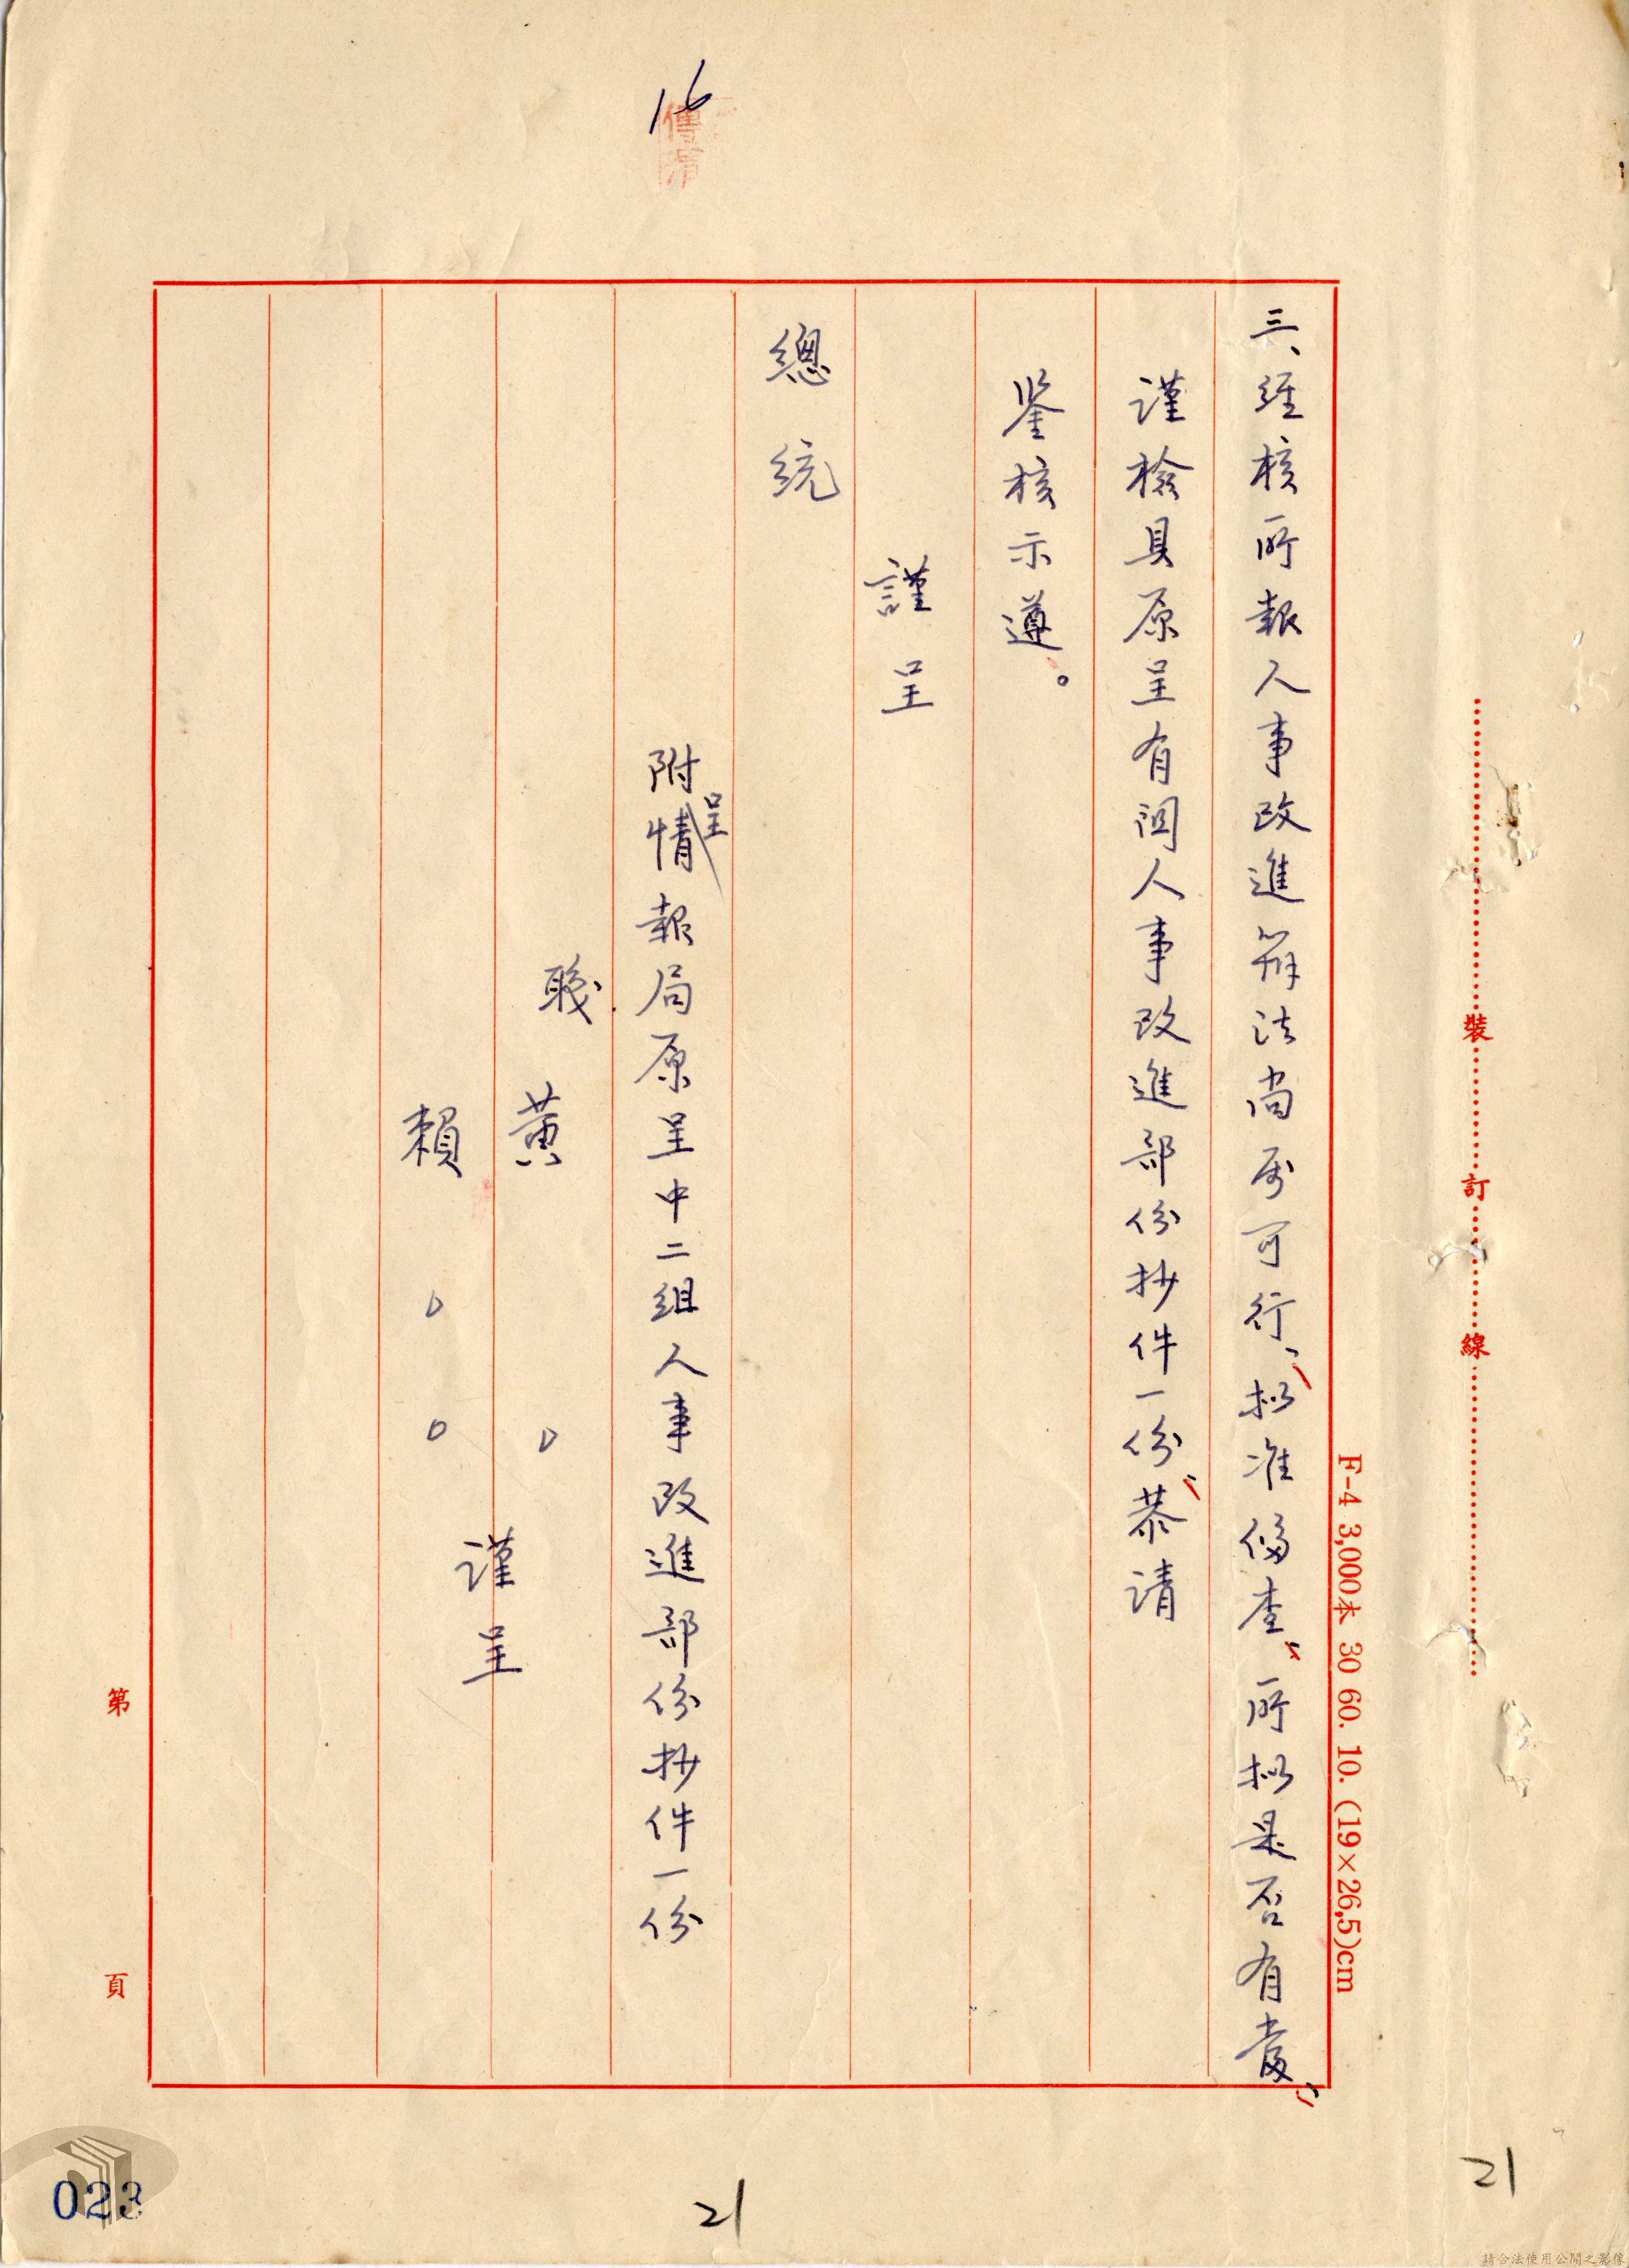 16
傳清
三、經核所報人事改進辦法尚屬可行、擬准備查、所擬是否有當、
謹檢具原呈有關人事改進部份抄件一份、恭請
鑒核示遵。
謹呈
總統
附呈情報局原呈中二組人事改進部份抄件一份
職 黃
賴
謹呈
裝訂線
F-4 3,000本 30 60. 10. (19×26.5)cm
第 頁
21
21
023
請合法使用公開之影像